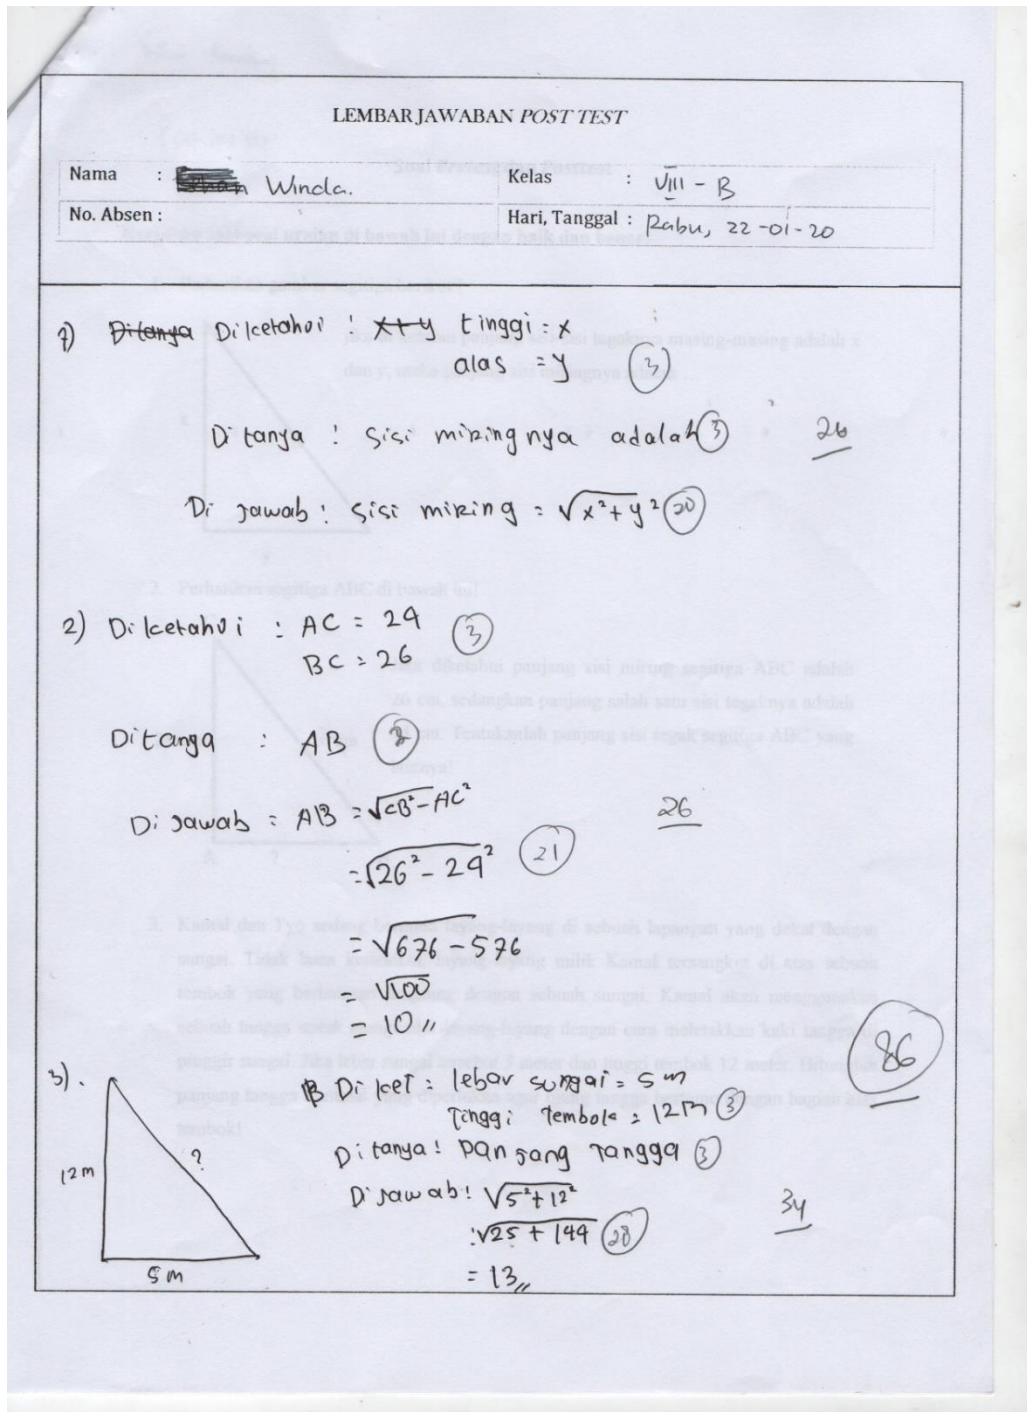 LEMBAR JAWABAN POST TEST
Nama : Winda.
Kelas : VIII - B
No. Absen :
Hari, Tanggal : Rabu, 22-01-20
1) Ditanya Diketahui : x+y tinggi = x
alas = y 3
Ditanya : Sisi miringnya adalah 3
26
Di jawab : Sisi miring = √x²+y² 20
2) Diketahui : AC = 24 3
BC = 26
Ditanya : AB 2
Di jawab : AB = √CB²-AC²
26
= √26²-24² 21
= √676-576
= √100
= 10,,
86
3). B Diket : lebar sungai = 5 m
Tinggi tembok = 12 m 3
Ditanya : panjang tangga 3
12 m
?
Dijawab : √5²+12²
34
: √25 + 144 28
5 m
= 13,,